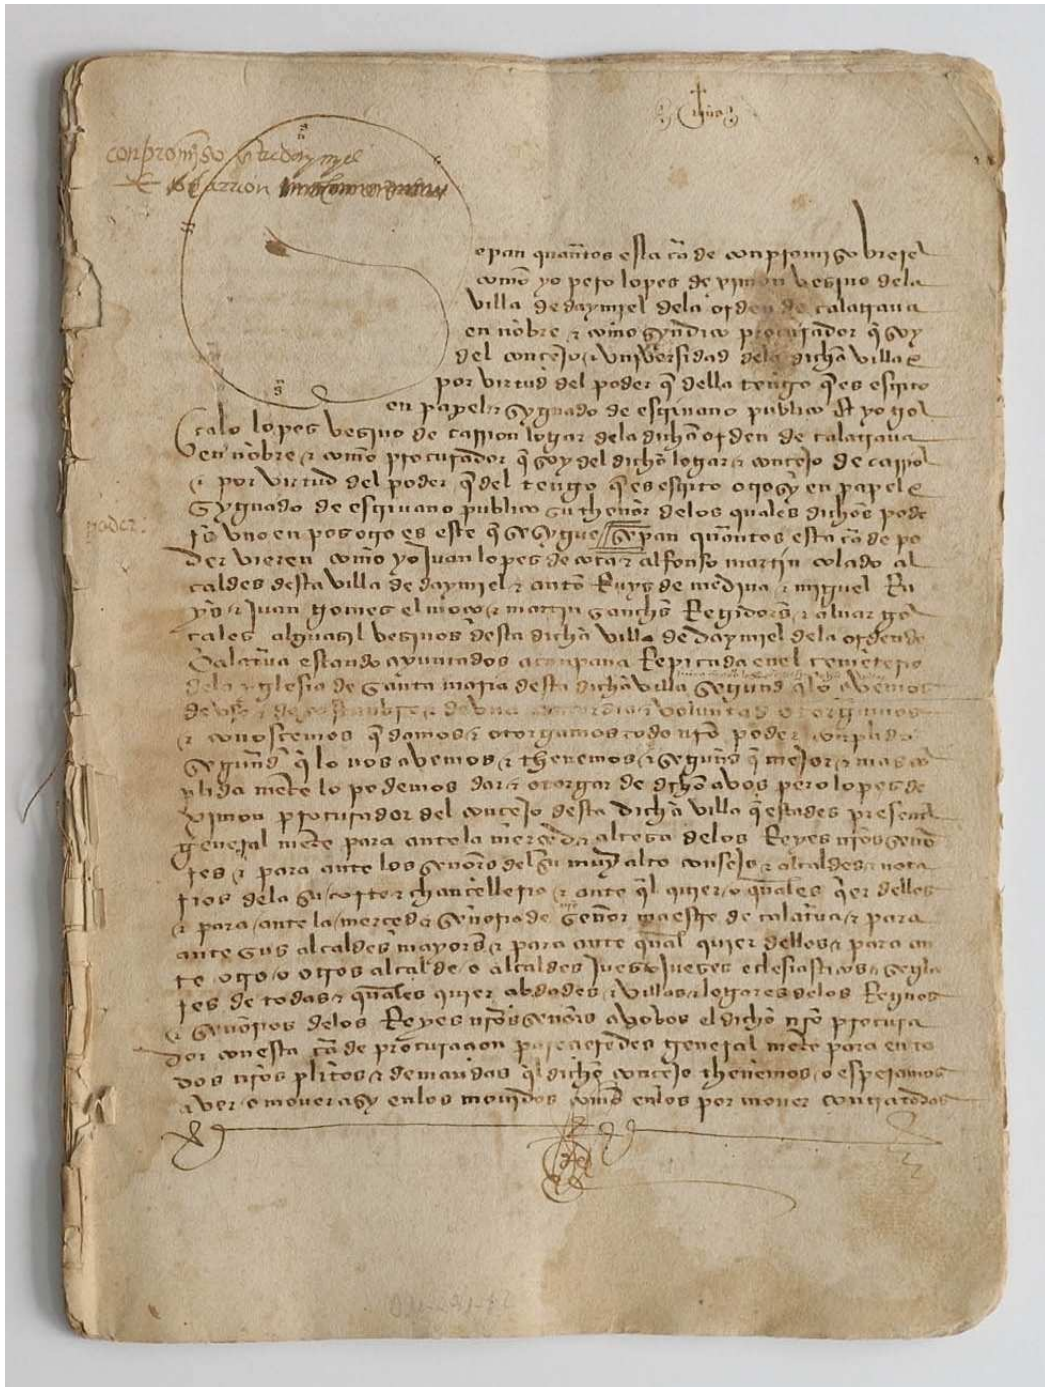 conpromiso de daymiel
& de carrion
epan quantos esta cã de conpromiso vieren
como yo pero lopes de ximon vesino dela
villa de daymiel dela orden de calatraua
en nõbre & como syndico procurador q̃ soy
del conçejo & vniversidad dela dicha villa &
por virtud del poder q̃ della tengo q̃ es esc̃pto
en papel & sygnado de escriuano publico & yo gõ
çalo lopes vesino de carrion logar dela dicha orden de calatraua
en nõbre & como procurador q̃ soy del dicho logar & conçejo de carriõ
& por virtud del poder q̃ del tengo q̃ es esc̃pto otrosy en papel &
sygnado de escriuano publico su thenor delos quales dichos pode
poder
r̃s vno en pos otro es este q̃ se sygue sepan quãntos esta cã de po
der vieren como yo Juan lopes de cota & alfonso martin colado al
caldes desta villa de daymiel & antõ Ruys de medina & miguel Ra
yo & Juan gomes el moço & martin sanches Regidores & aluar gõ
çales alguasyl vesinos desta dicha villa de daymiel dela orden de
Calat̃ua estando ayuntados a canpana Repicada en el çementerio
dela yglesia de santa maria desta dicha villa segund q̃ lo avemos
de vso & de costunbre & de vna concordia & voluntad otorgamos
& conosçemos q̃ damos & otorgamos todo nr̃o poder conplido
segund q̃ lo nos avemos & thenemos & segund q̃ mejor & mas cõ
plida mẽte lo podemos dar & otorgar de dicho a vos pero lopes de
ximon procurador del conçejo desta dicha villa q̃ estades presente
general mẽte para ante la merçed & altesa delos Reyes nr̃os seño
res & para ante los señores del su muy alto consejo & alcaldes & nota
rios dela su corte & chançelleria & ante q̃l quier o quales q̃er dellos
& para ante la merçed & señoria de señor maestre de calat̃ua & para
ante sus alcaldes mayores & para ante qual quier dellos & para an
te otro o otros alcalde o alcaldes Jues o Jueses eclesiasticos & segla
res de todas & quales quier abdades & villas & logares delos Reynos
& señorios delos Reyes nr̃os señores a vos el dicho nr̃o procura
dor con esta cã de procuraçion general mẽte para en to
dos nr̃os pleitos & demandas q̃l dicho conçejo thenemos o esperamos
aver o mover asy en los movidos como en los por mover contra todas